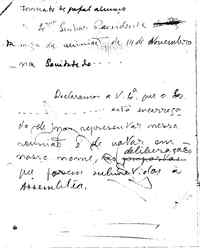 Formato de papel almaço
Exmo Senhor Presidente
da mesa da reunião de 14 de Novembro
na Sanitade de
Declaramos a V. Ex. que o Sr.
está encarrega
do de nos representar nessa
reunião e de votar em
nosso nome, deliberações
que forem submetidas à
Assembleia.